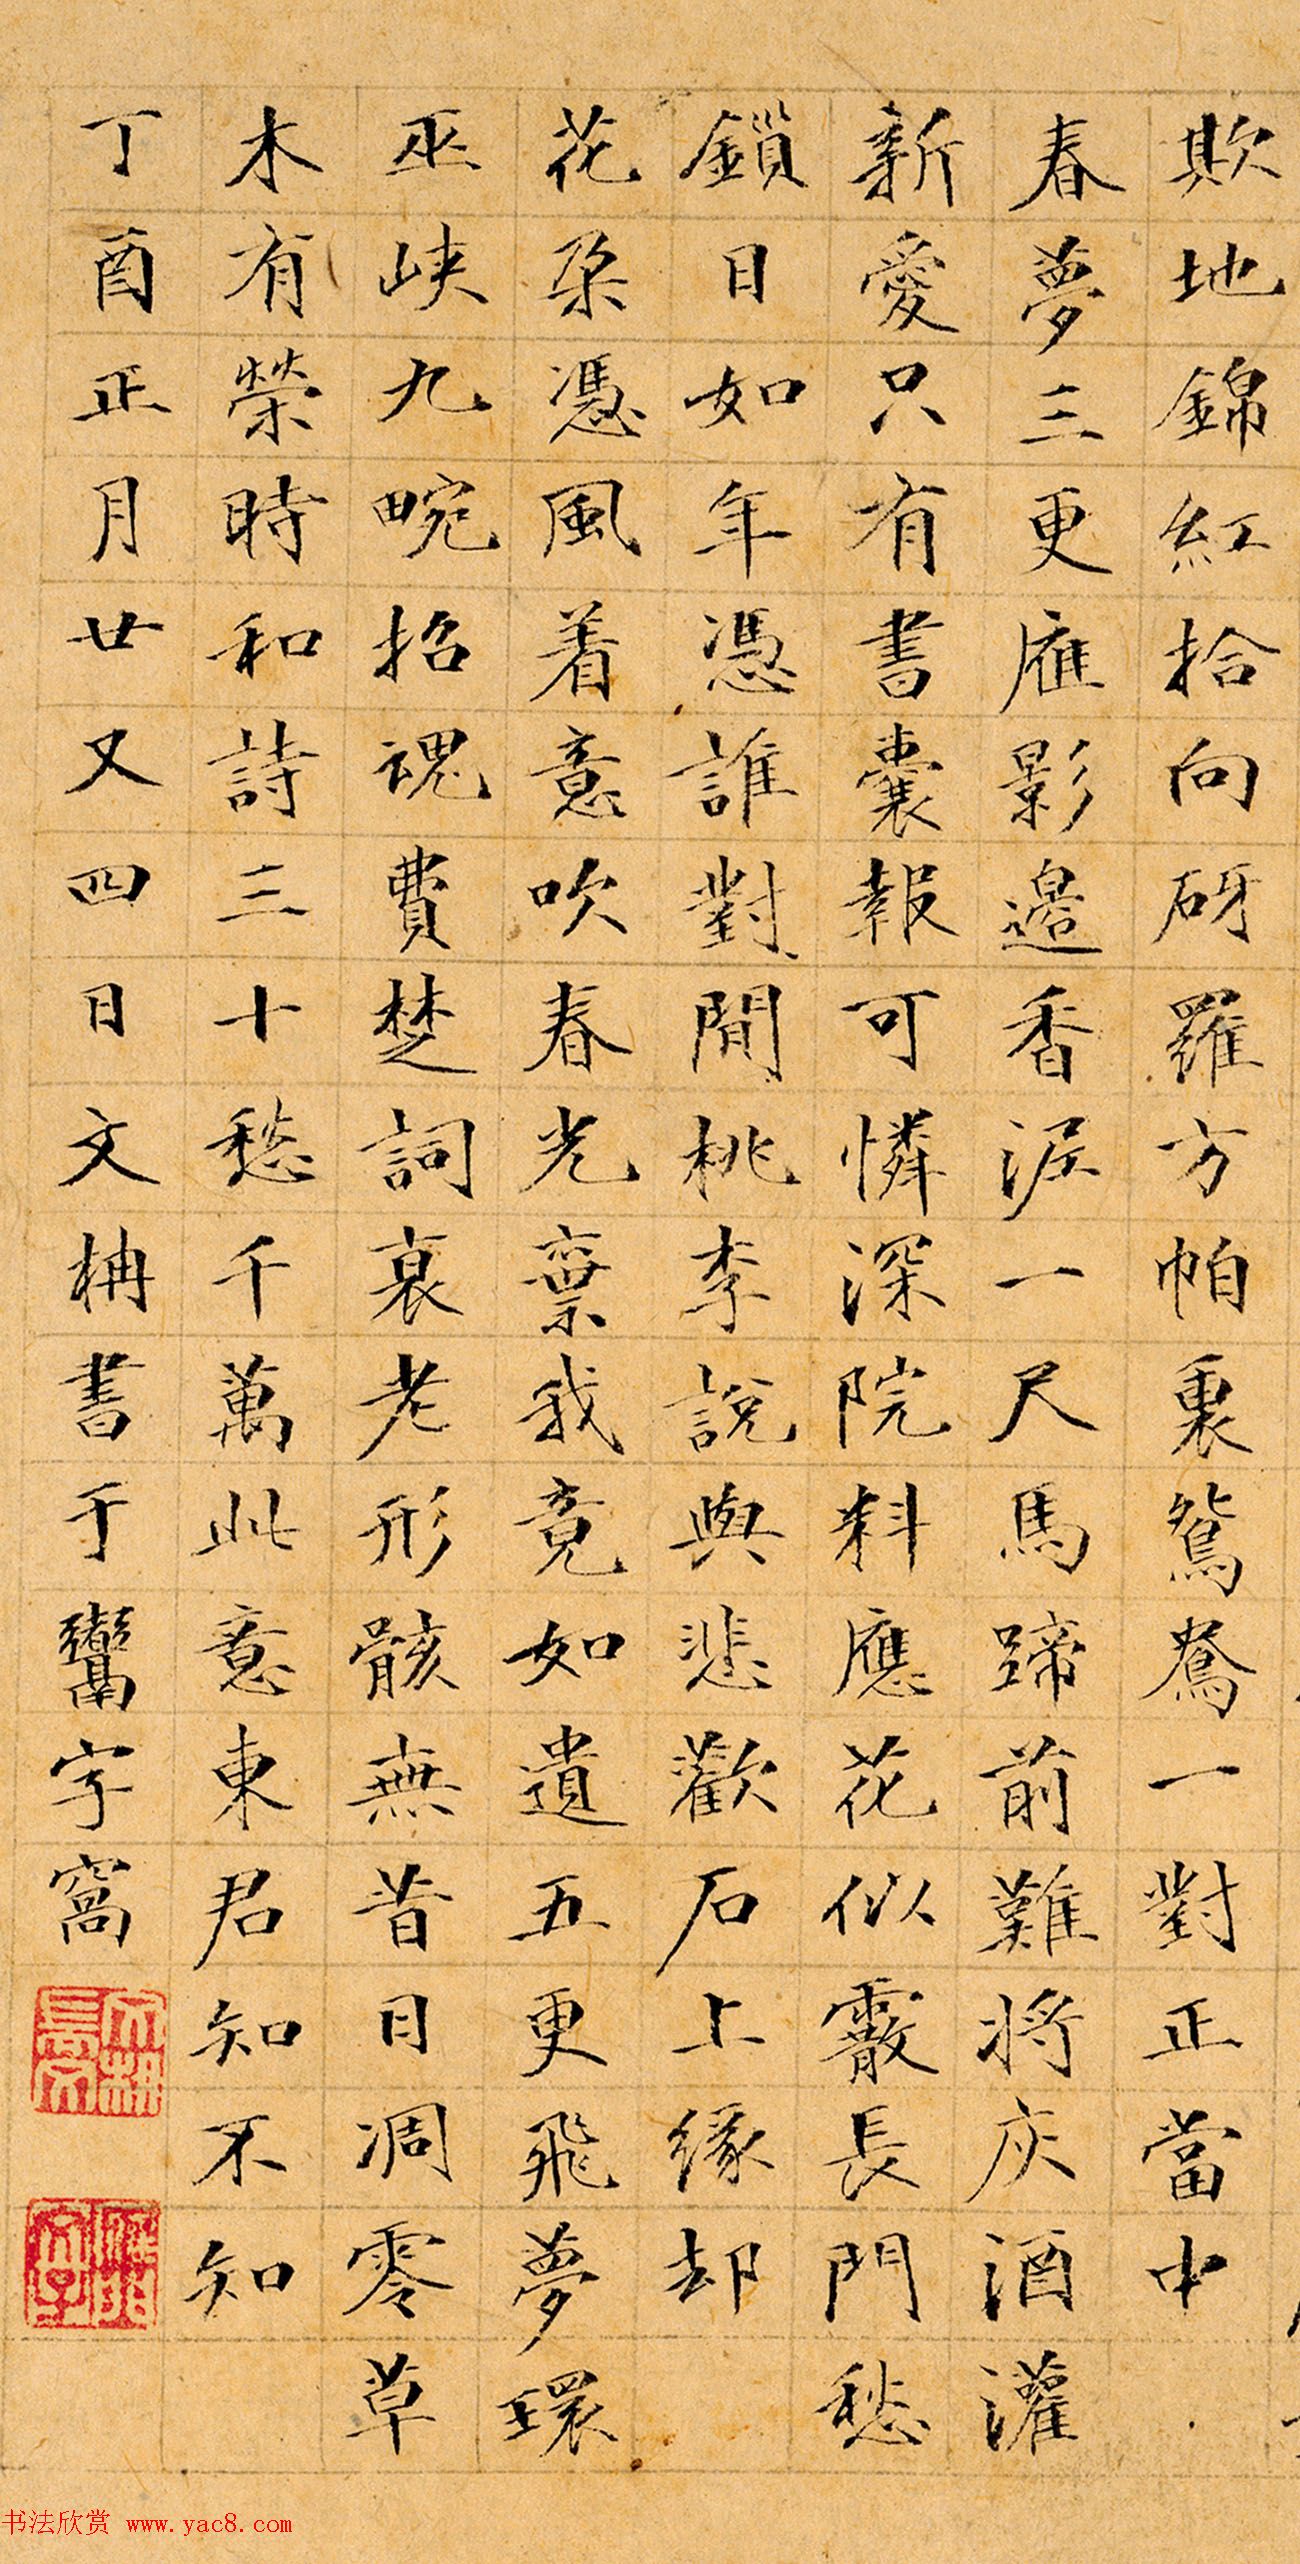 欺地錦紅拾向砑羅方帕裏鴛鴦一對正當中
春夢三更雁影邊香泥一尺馬蹄前難將灰酒灌
新愛只有書囊報可憐深院料應花似霰長門愁
鎖日如年憑誰對閒桃李說與悲歡石上緣却
花朶憑風着意吹春光棄我竟如遺五更飛夢環
巫峽九畹招魂費楚詞衰老形骸無昔日凋零草
木有榮時和詩三十愁千萬此意東君知不知
丁酉正月廿又四日文柟書于鬻字窩
書法欣赏 www.yac8.com